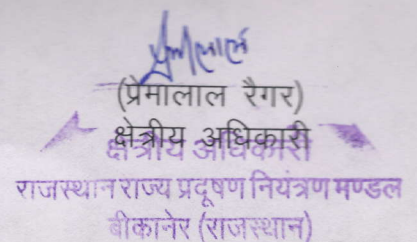 (प्रेमालाल रैगर)
क्षेत्रीय अधिकारी
क्षेत्रीय अधिकारी
राजस्थान राज्य प्रदूषण नियंत्रण मण्डल
बीकानेर (राजस्थान)